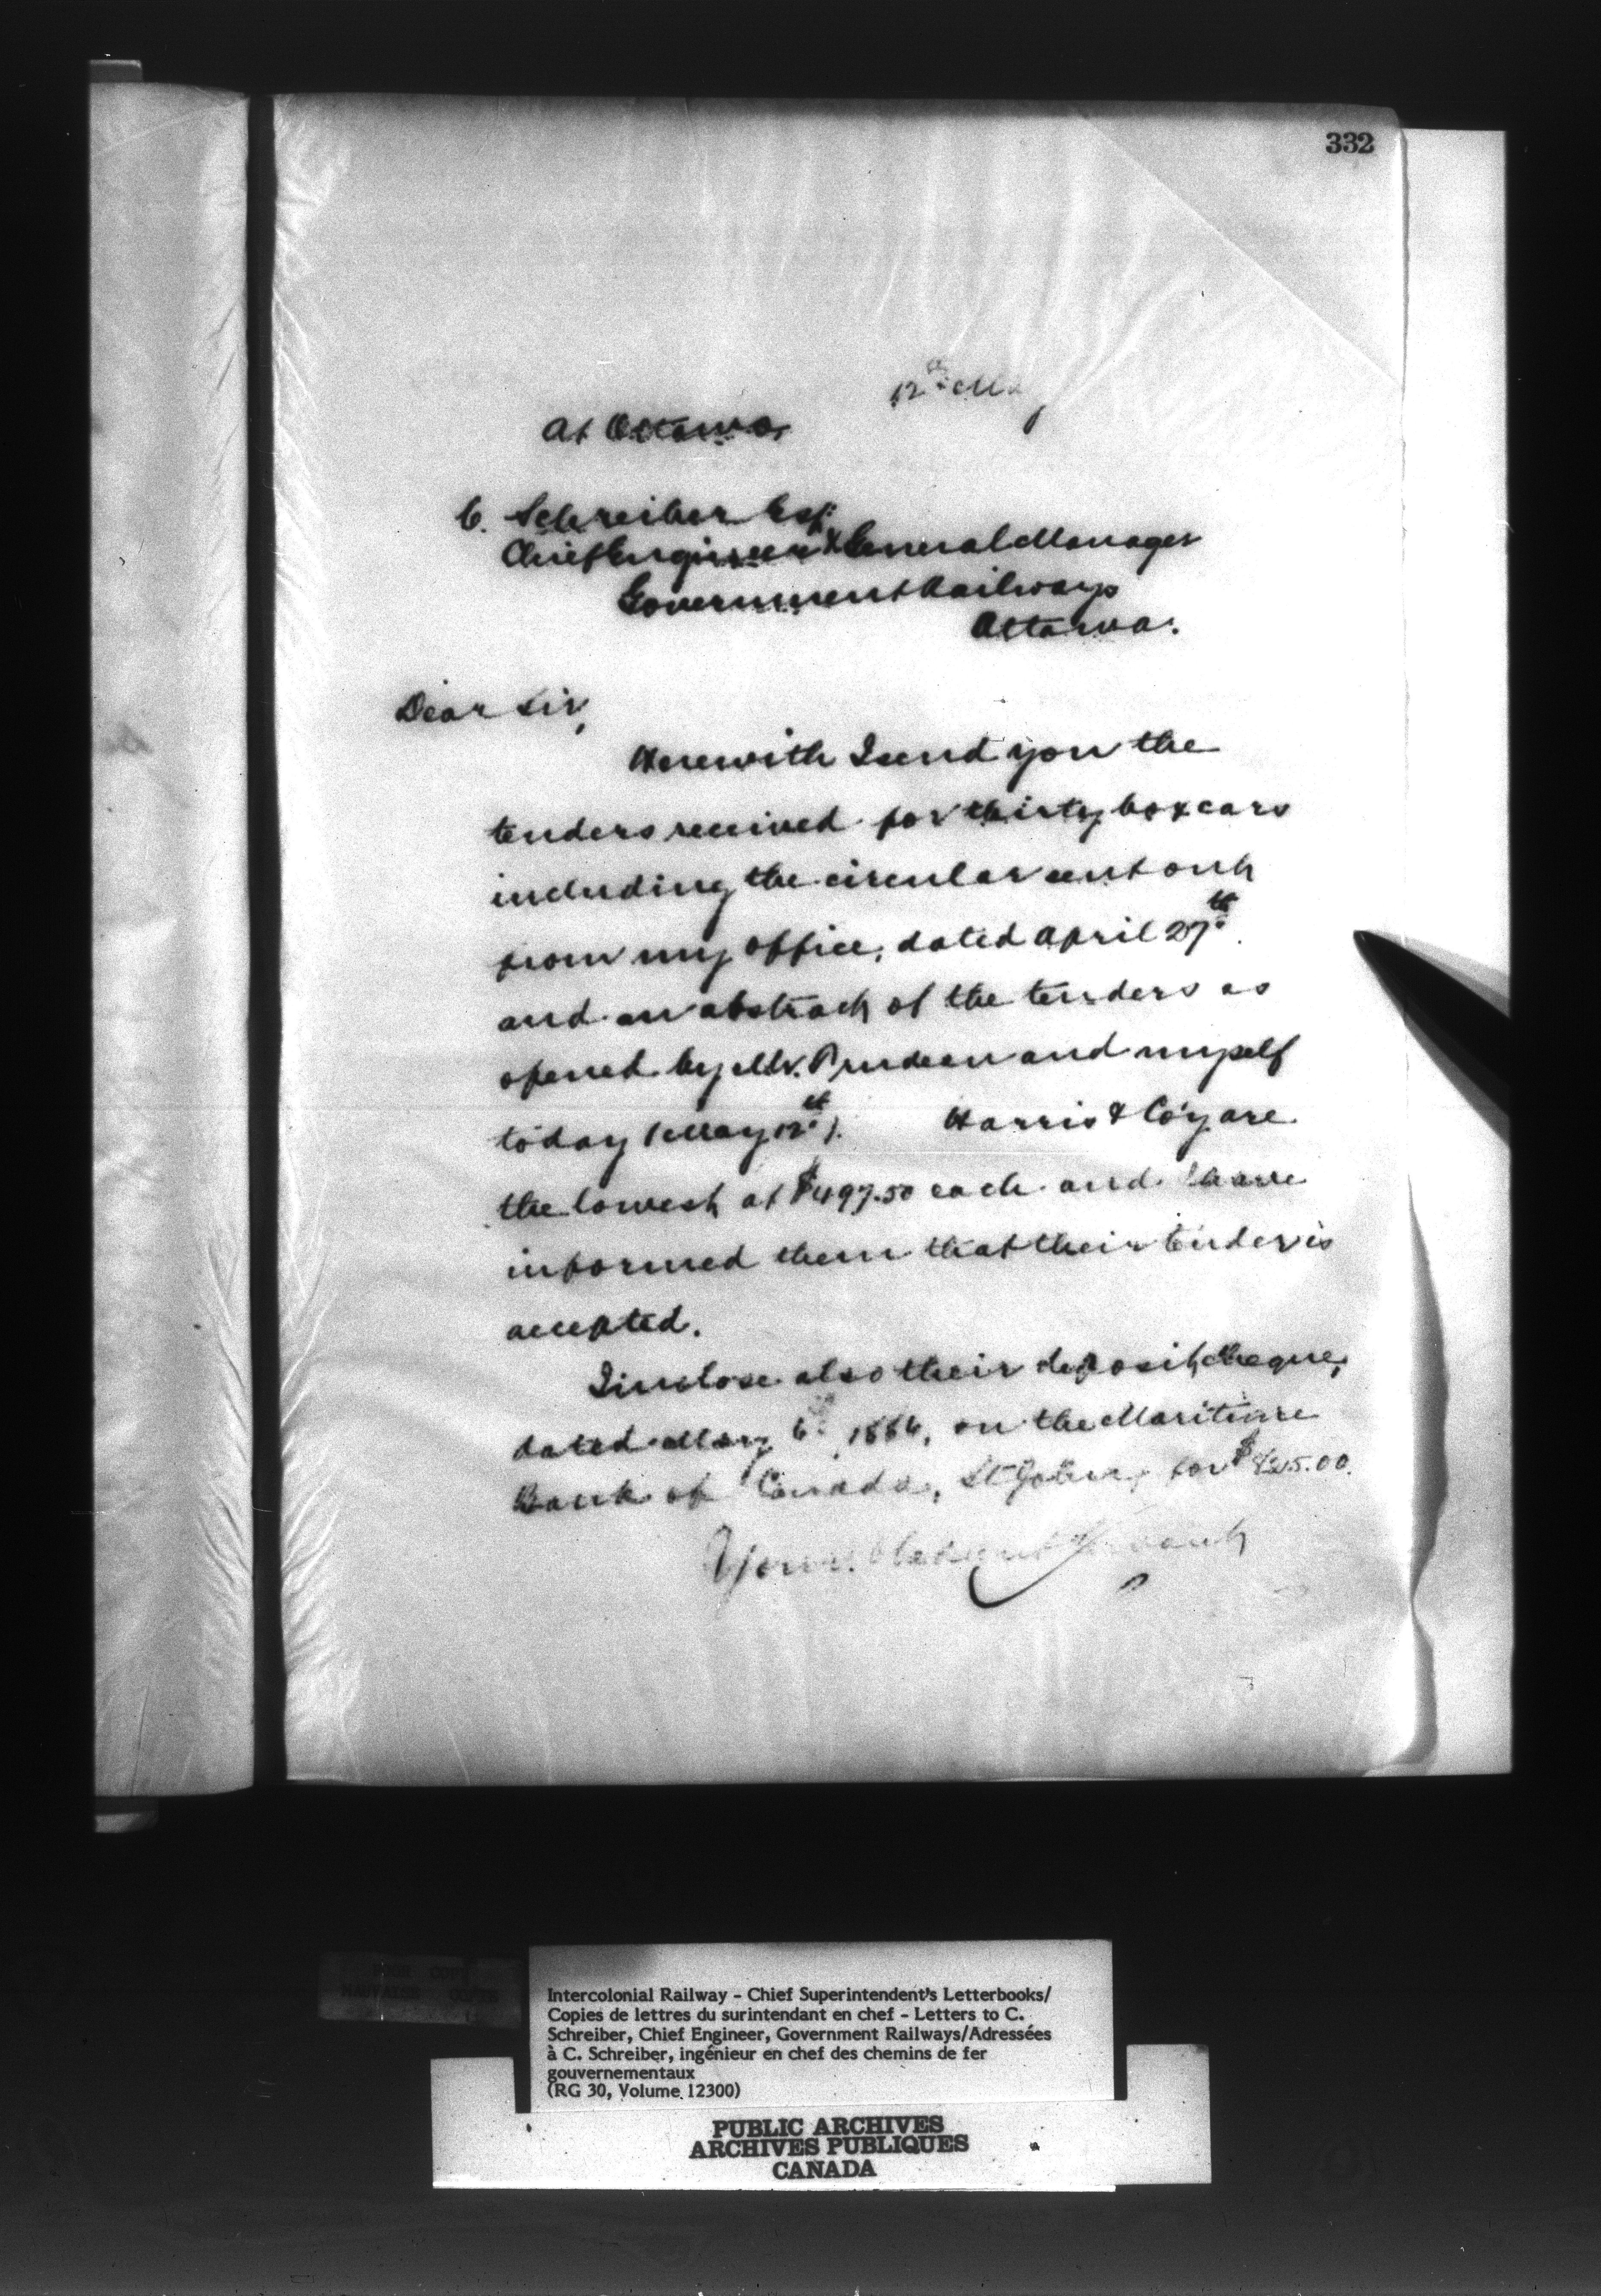 332
12th May
At Ottawa
C. Schreiber Esq.
Chief Engineer & General Manager
Government Railways
Ottawa.
Dear Sir,
Herewith I send you the
tenders received for thirty box cars
including the circular sent out
from my office, dated April 27th
and an abstract of the tenders as
opened by Mr. and myself
today (May 12th). Harris & Co'y are
the lowest at $497.50 each and I have
informed them that their tender is
accepted.
I inclose also their deposit cheque,
dated May 6th 1886, on the Maritime
Bank of Canada, St John, for
Your Obedient Servant
POOR COPY
MAUVAISE COPIE
Intercolonial Railway - Chief Superintendent's Letterbooks/
Copies de lettres du surintendant en chef - Letters to C.
Schreiber, Chief Engineer, Government Railways/Adressées
à C. Schreiber, ingénieur en chef des chemins de fer
gouvernementaux
(RG 30, Volume 12300)
PUBLIC ARCHIVES
ARCHIVES PUBLIQUES
CANADA